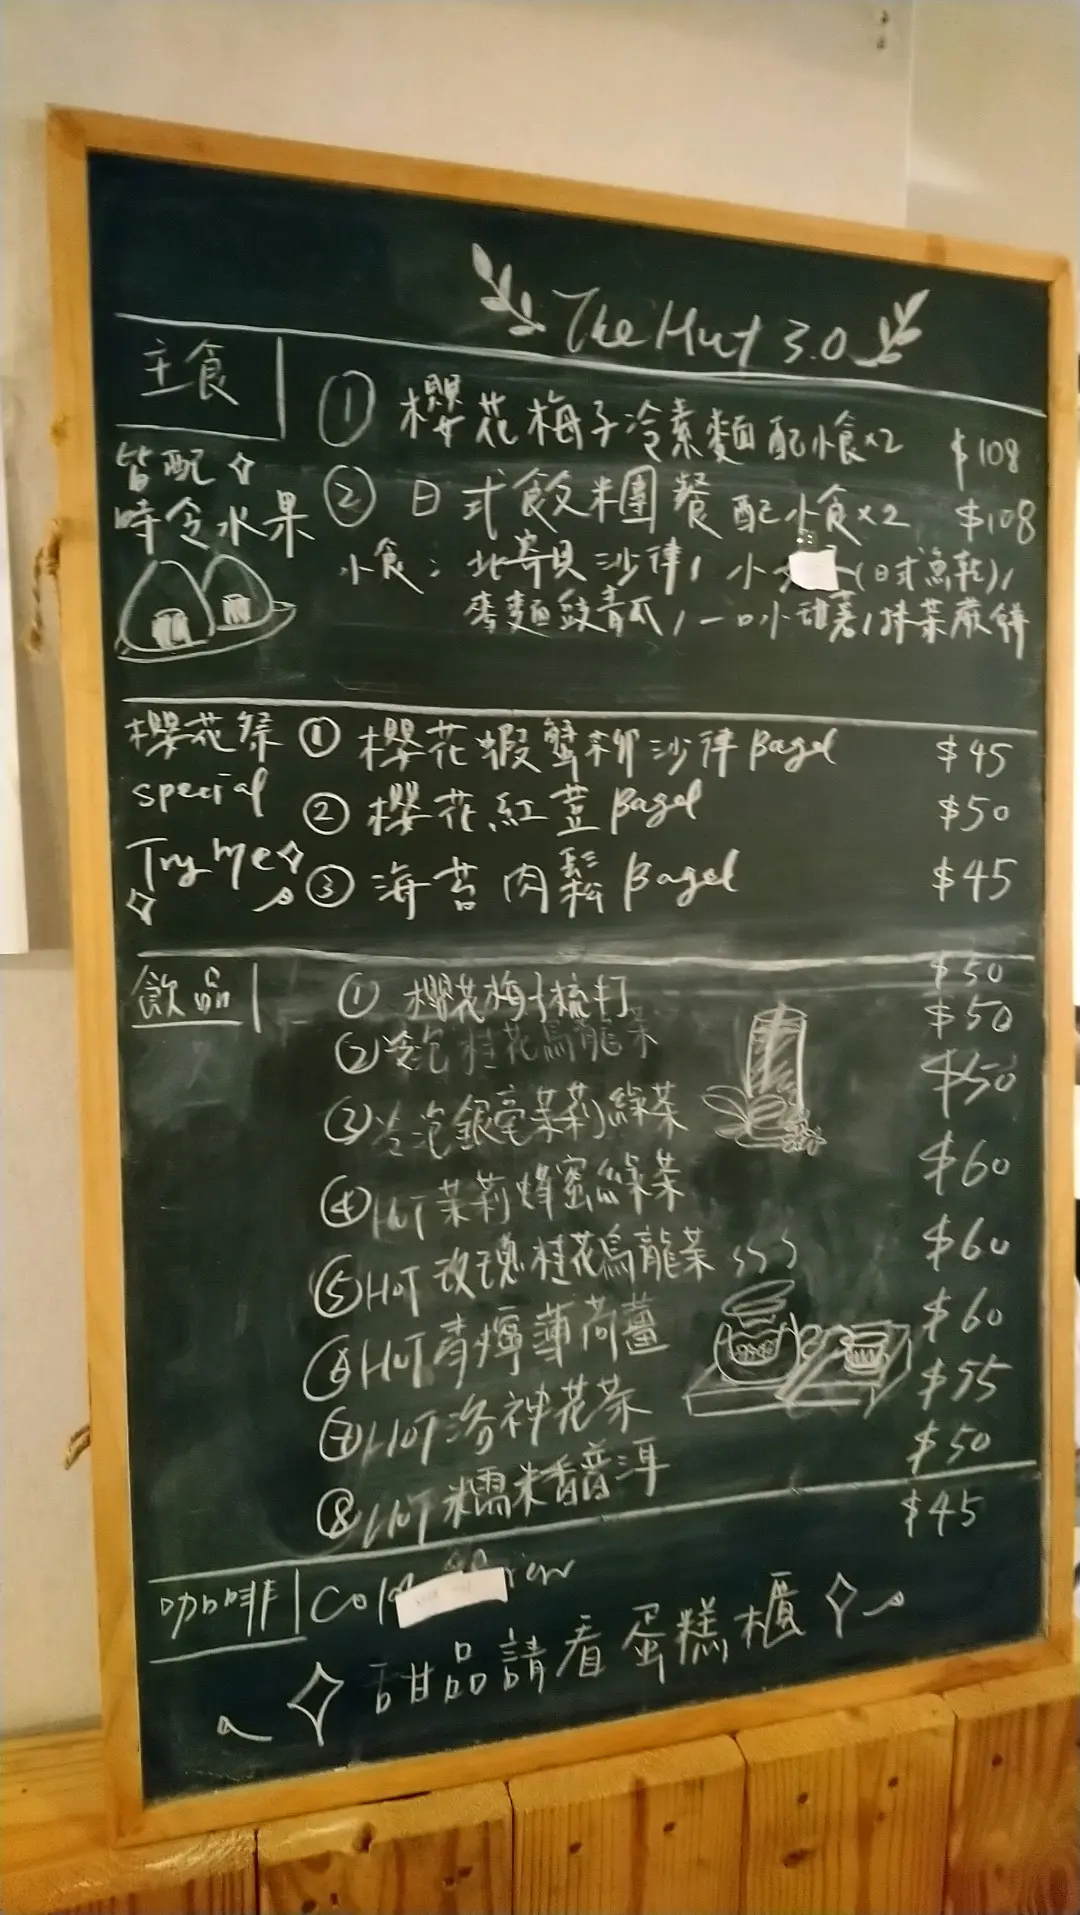 The Hut 3.0
主食
皆配
時令水果
① 櫻花梅子冷素麵配小食x2 $108
② 日式飯米團餐配小食x2 $108
小食: 北寄貝沙律, 小 (日式魚乾),
麥麵豉青瓜, 一口小甜薯, 抹茶蕨餅
櫻花祭
special
Try Me
① 櫻花蝦蟹柳沙律 Bagel $45
② 櫻花紅荳 Bagel $50
③ 海苔肉鬆 Bagel $45
飲品
① 櫻花梅子梳打 $50
② 冷泡桂花烏龍茶 $50
③ 冷泡銀毫茉莉綠茶 $50
④ HOT 茉莉蜂蜜綠茶 $60
⑤ HOT 玫瑰桂花烏龍茶 $60
⑥ HOT 青檸薄荷薑 $60
⑦ HOT 洛神花茶 $55
⑧ HOT 糯米香普洱 $50
咖啡 Cold $45
甜品請看蛋糕櫃